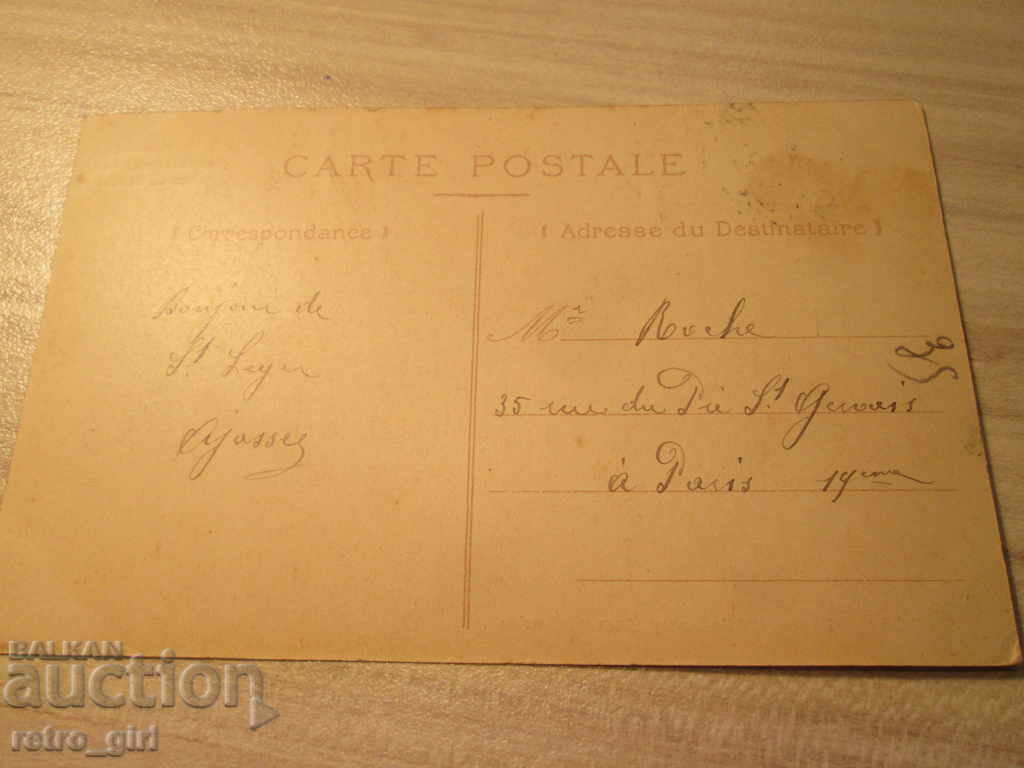 CARTE POSTALE
( Correspondance )
( Adresse du Destinataire )
Bonjour de
St Leger
Mr Roche
35 rue du Pré St Gervais
à Paris 19eme
BALKAN
auction
retro_girl